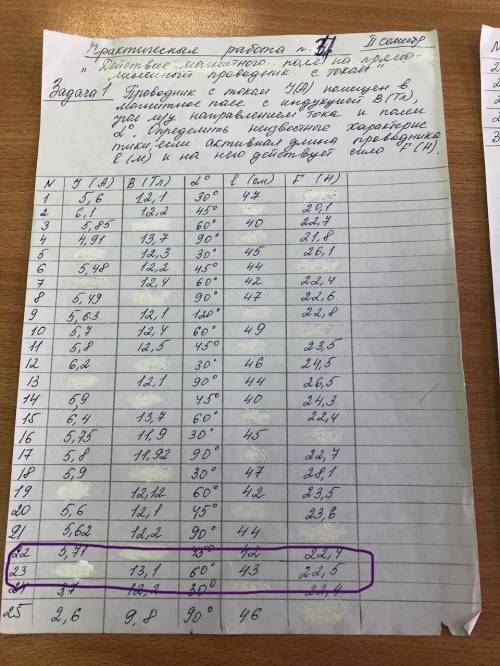 Практическая работа №3 II семестр
"Действие магнитного поля на прямо-
линейный проводник с током"
Задача 1 Проводник с током I(А) помещен в
магнитное поле с индукцией В(Тл),
угол м/у направлением тока и поля
α°. Определить неизвестные характерис
тики, если активная длина проводника
ℓ(м) и на него действует сила F(Н).
N I(А) В(Тл) α° ℓ(см) F(Н)
1 5,6 12,1 30° 47
2 6,1 12,2 45° 20,1
3 5,85 60° 40 22,7
4 4,91 13,7 90° 21,8
5 12,3 30° 45 26,1
6 5,48 12,2 45° 44
7 12,4 60° 42 22,4
8 5,49 90° 47 22,6
9 5,63 12,1 120° 22,8
10 5,7 12,4 60° 49
11 5,8 12,5 45° 23,5
12 6,2 30° 46 24,5
13 12,1 90° 44 26,5
14 5,9 45° 40 24,3
15 6,4 13,7 60° 22,4
16 5,75 11,9 30° 45
17 5,8 11,92 90° 22,7
18 5,9 30° 47 28,1
19 12,12 60° 42 23,5
20 5,6 12,1 45° 23,6
21 5,62 12,2 90° 44
22 5,71 45° 42 22,4
23 13,1 60° 43 22,5
24 3,7 12,2 30° 22,4
25 2,6 9,8 90° 46